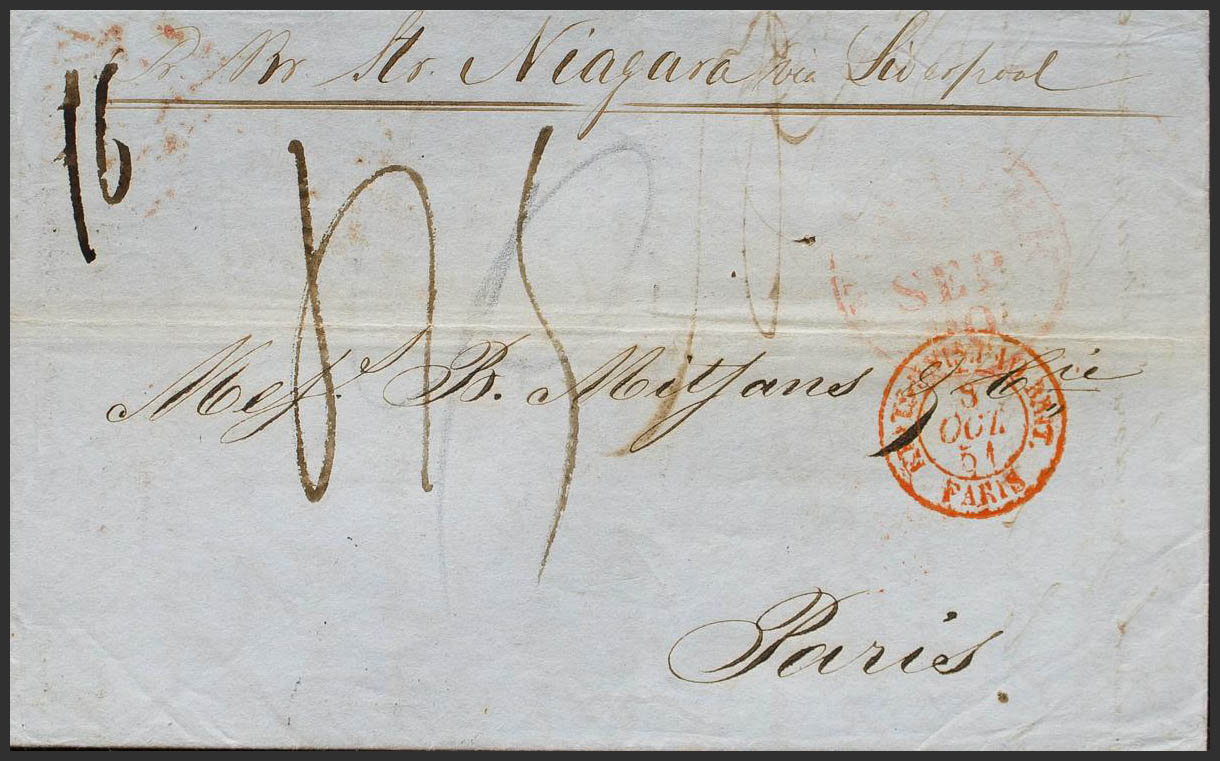 Pr Br Str. Niagara via Liverpool
16
SEP
Messrs. B. Mitjans & Cie
8
OCT.
51
PARIS
Paris